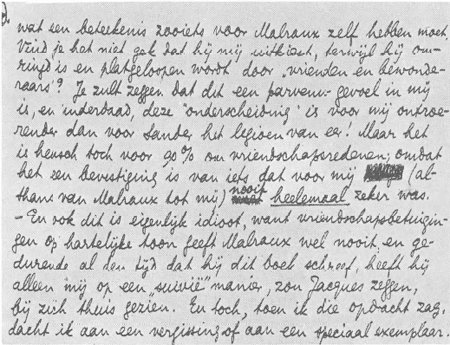 wat een beteekenis zooiets voor Malraux zelf hebben moet.
Vind je het niet gek dat hij mij uitkiest, terwijl hij om-
ringd is en platgeloopen wordt door „vrienden en bewonde-
raars”? Je zult zeggen dat dit een parvenu-gevoel in mij
is, en inderdaad, deze "onderscheiding" is voor mij ontroe-
render dan voor Sander het legioen van eer! Maar het
is heusch toch voor 90% om vriendschapsredenen; omdat
het een bevestiging is van iets dat voor mij (al-
thans van Malraux tot mij) nooit heelemaal zeker was.
- En ook dit is eigenlijk idioot, want vriendschapsbetuigin-
gen op hartelijke toon geeft Malraux wel nooit, en ge-
durende al den tijd dat hij dit boek schreef, heeft hij
alleen mij op een „suivie” manier, zou Jacques zeggen,
bij zich thuis gezien. En toch, toen ik die opdracht zag,
dacht ik aan een vergissing of aan een speciaal exemplaar.